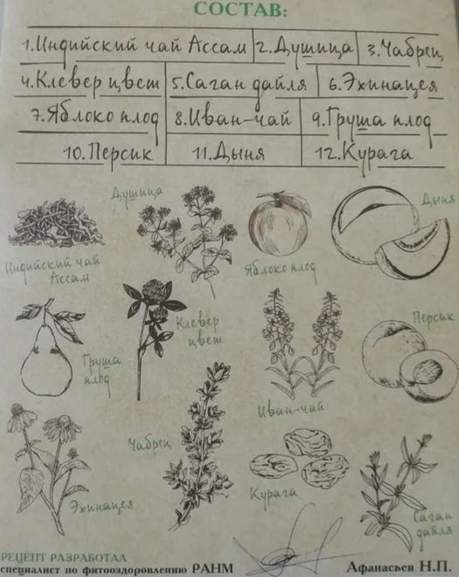 СОСТАВ:
1.Индийский чай Ассам 2.Душица 3.Чабрец
4.Клевер цвет 5.Саган дайля 6.Эхинацея
7.Яблоко плод 8.Иван-чай 9.Груша плод
10.Персик 11.Дыня 12.Курага
Душица
Дыня
Индийский чай
Ассам
Яблоко плод
Клевер
цвет
Персик
Груша
плод
Иван-чай
Чабрец
Эхинацея
Курага
Саган
дайля
РЕЦЕПТ РАЗРАБОТАЛ
специалист по фитооздоровлению РАНМ Афанасьев Н.П.